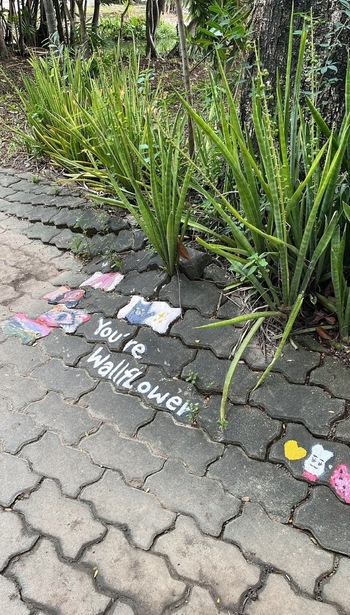 You're
Wallflower